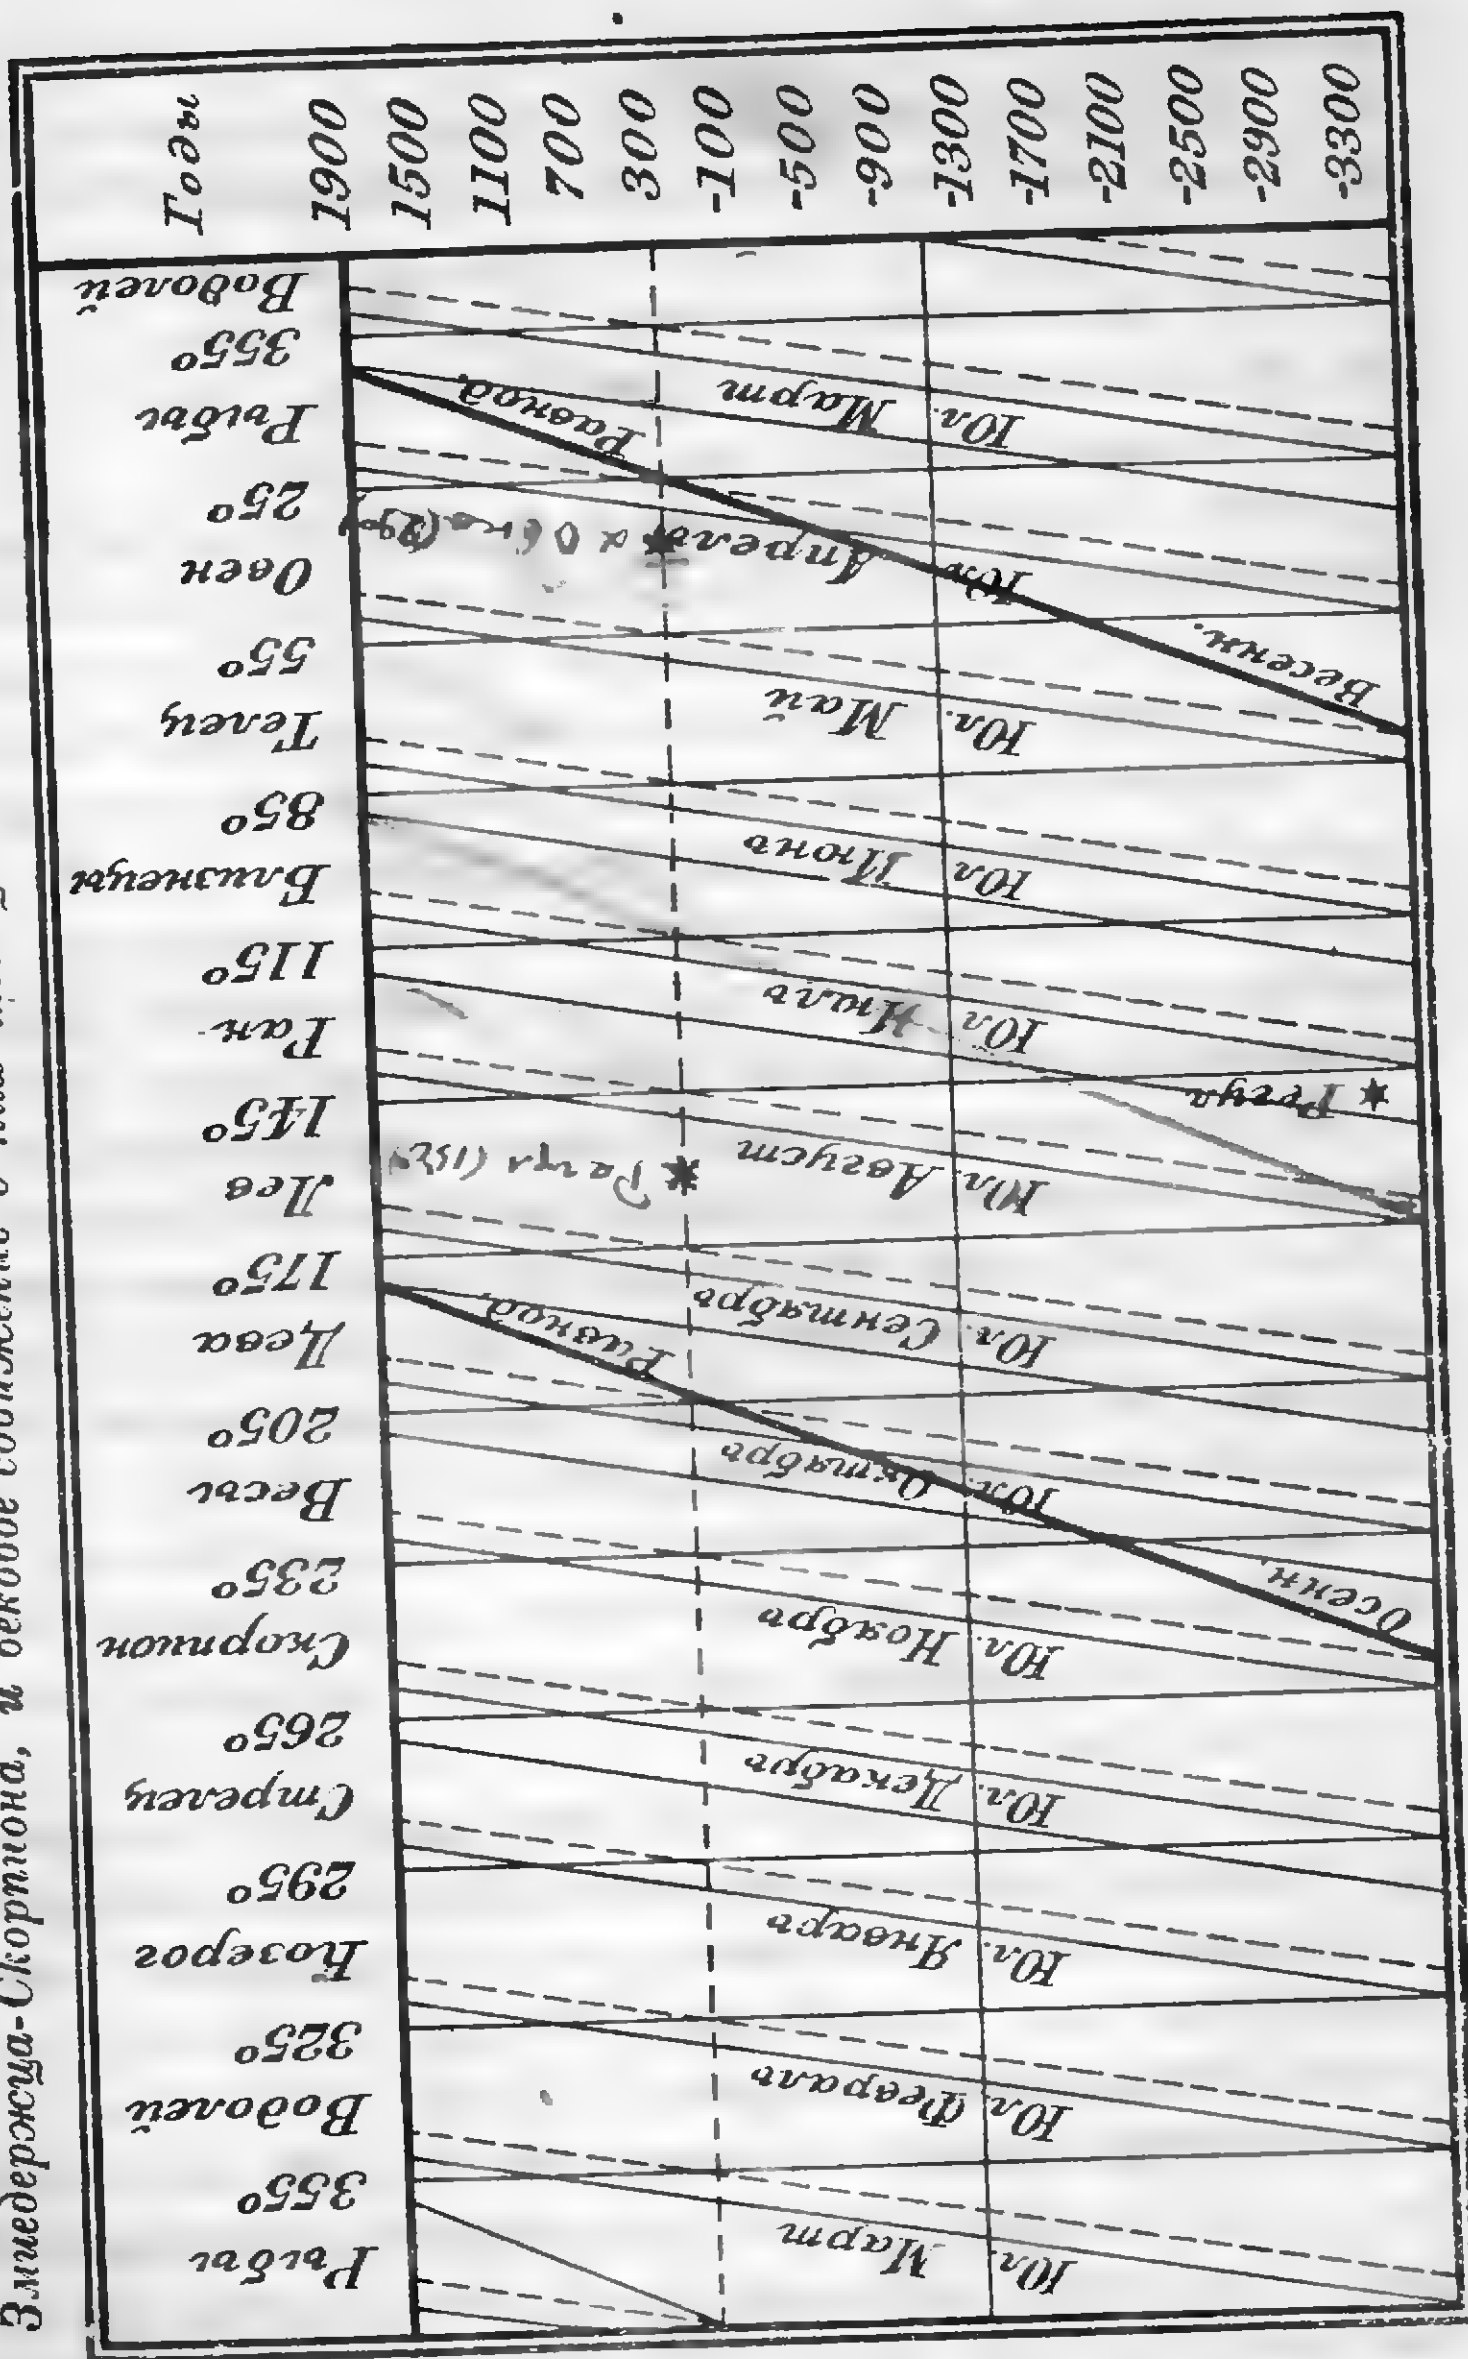 Змиедержца-Скорпиона, и вековое
Годы
1900
1500
1100
700
300
-100
-500
-900
-1300
-1700
-2100
-2500
-2900
-3300
Водолей
355°
Рыбы
25°
Овен
55°
Телец
85°
Близнецы
115°
Рак
145°
Лев
175°
Дева
205°
Весы
235°
Скорпион
265°
Стрелец
295°
Козерог
325°
Водолей
355°
Рыбы
Юл. Март
Весенн. Равнод.
Юл. Апрель
Юл. Май
Юл. Июнь
Юл. Июль
Регул
Юл. Август
Юл. Сентябрь
Осенн. Равнод.
Юл. Октябрь
Юл. Ноябрь
Юл. Декабрь
Юл. Январь
Юл. Февраль
Юл. Март